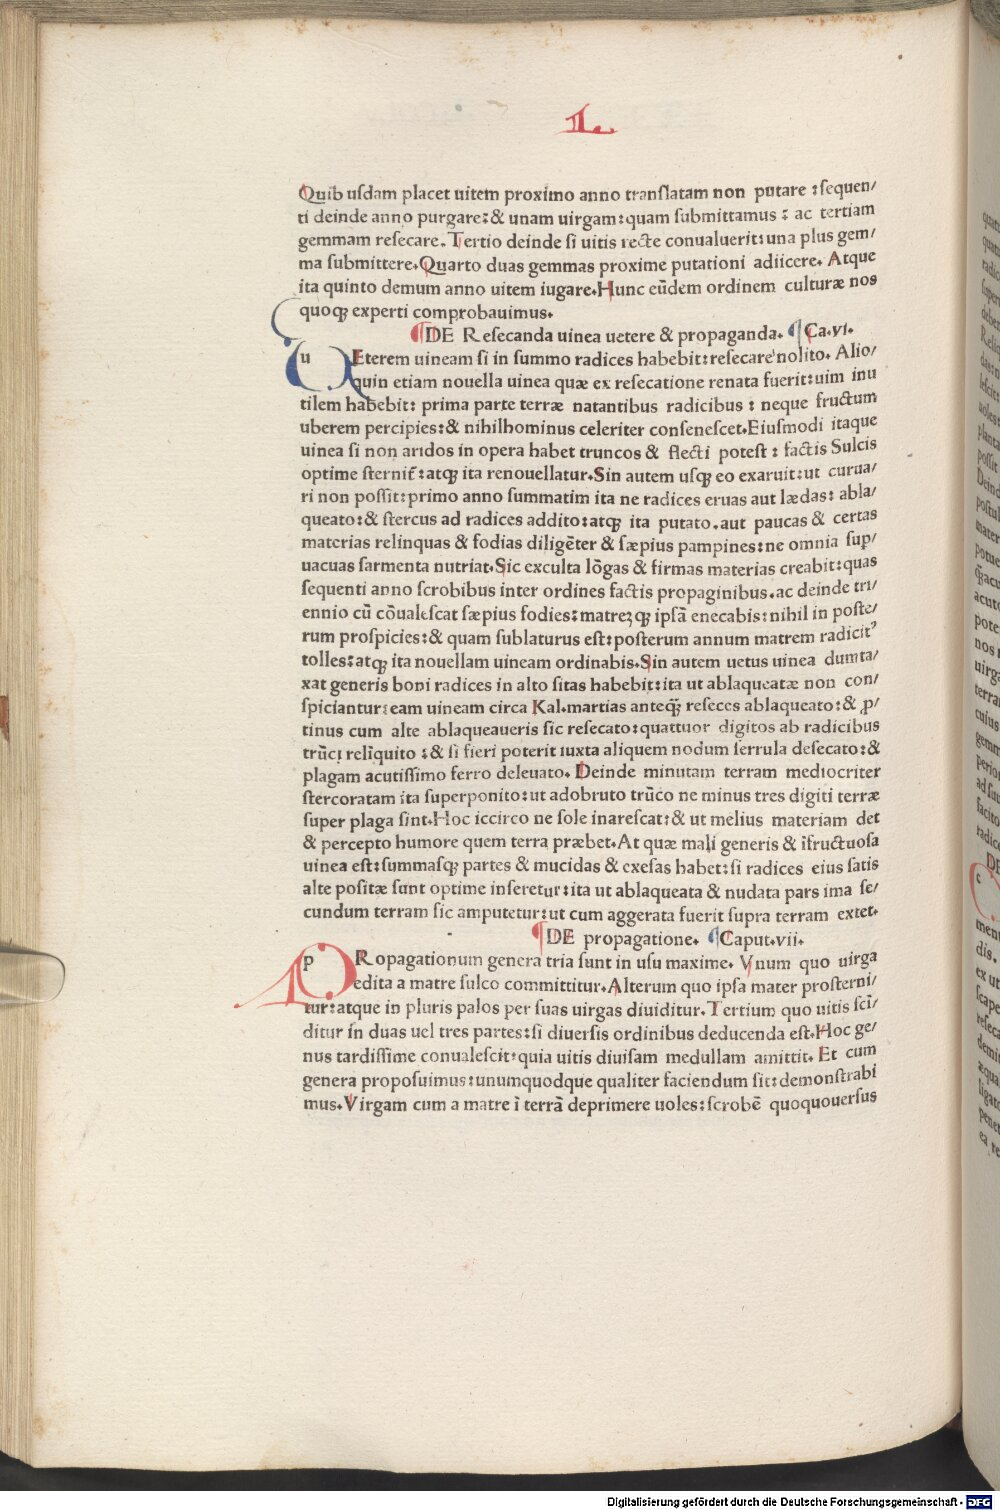 L.
Quib uſdam placet uitem proximo anno tranſlatam non putare : ſequen/
ti deinde anno purgare: & unam uirgam: quam ſubmittamus : ac tertiam
gemmam reſecare. Tertio deinde ſi uitis recte conualuerit: una plus gem/
ma ſubmittere. Quarto duas gemmas proxime putationi adiicere. Atque
ita quinto demum anno uitem iugare. Hunc eūdem ordinem culturæ nos
quoqꝫ experti comprobauimus.
¶DE Reſecanda uinea uetere & propaganda. ¶Ca.vi.
uEterem uineam ſi in ſummo radices habebit: reſecare nolito. Alio/
quin etiam nouella uinea quæ ex reſecatione renata fuerit: uim inu
tilem habebit: prima parte terræ natantibus radicibus : neque fructum
uberem percipies: & nihilhominus celeriter conſeneſcet. Eiuſmodi itaque
uinea ſi non aridos in opera habet truncos & flecti poteſt : factis Sulcis
optime ſternit̄: atqꝫ ita renouellatur. Sin autem uſqꝫ eo exaruit: ut curua/
ri non poſſit: primo anno ſummatim ita ne radices eruas aut lædas: abla/
queato: & ſtercus ad radices addito: atqꝫ ita putato. aut paucas & certas
materias relinquas & fodias diligēter & ſæpius pampines: ne omnia ſup/
uacuas ſarmenta nutriat. Sic exculta lōgas & firmas materias creabit: quas
ſequenti anno ſcrobibus inter ordines factis propaginibus. ac deinde tri/
ennio cū cōualeſcat ſæpius fodies: matreꝫqꝫ ipſā enecabis: nihil in poſte/
rum proſpicies: & quam ſublaturus eſt: poſterum annum matrem radicit᾽
tolles: atqꝫ ita nouellam uineam ordinabis. Sin autem uetus uinea dumta/
xat generis boni radices in alto ſitas habebit: ita ut ablaqueatæ non con/
ſpiciantur: eam uineam circa Kal. martias anteqꝫ̄ reſeces ablaqueato: & ꝓ/
tinus cum alte ablaqueaueris ſic reſecato: quattuor digitos ab radicibus
trūci reliquito : & ſi fieri poterit iuxta aliquem nodum ſerrula deſecato: &
plagam acutiſſimo ferro deleuato. Deinde minutam terram mediocriter
ſtercoratam ita ſuperponito: ut adobruto trūco ne minus tres digiti terræ
ſuper plaga ſint. Hoc iccirco ne ſole inareſcat: & ut melius materiam det
& percepto humore quem terra præbet. At quæ mali generis & īfructuoſa
uinea eſt: ſummaſqꝫ partes & mucidas & exeſas habet: ſi radices eius ſatis
alte poſitæ ſunt optime inſeretur: ita ut ablaqueata & nudata pars ima ſe/
cundum terram ſic amputetur: ut cum aggerata fuerit ſupra terram extet.
¶DE propagatione. ¶Caput.vii.
pRopagationum genera tria ſunt in uſu maxime. Vnum quo uirga
edita a matre ſulco committitur. Alterum quo ipſa mater proſterni/
tur: atque in pluris palos per ſuas uirgas diuiditur. Tertium quo uitis ſci/
ditur in duas uel tres partes: ſi diuerſis ordinibus deducenda eſt. Hoc ge/
nus tardiſſime conualeſcit: quia uitis diuiſam medullam amittit. Et cum
genera propoſuimus: unumquodque qualiter faciendum ſit: demonſtrabi
mus. Virgam cum a matre ī terrā deprimere uoles: ſcrobē quoquouerſus
Digitalisierung gefördert durch die Deutsche Forschungsgemeinschaft - DFG